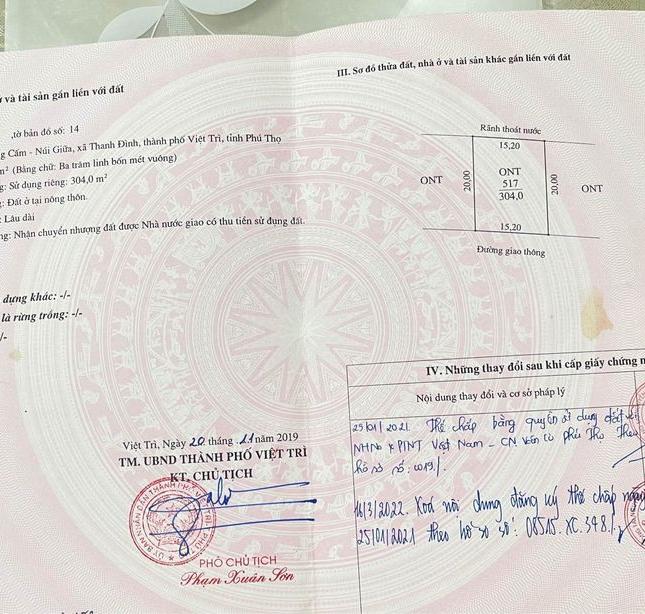 và tài sản gắn liền với đất
,tờ bản đồ số: 14
g Cấm - Núi Giữa, xã Thanh Đình, thành phố Việt Trì, tỉnh Phú Thọ
m² (Bằng chữ: Ba trăm linh bốn mét vuông)
g: Sử dụng riêng: 304,0 m²
: Đất ở tại nông thôn.
: Lâu dài
ng: Nhận chuyển nhượng đất được Nhà nước giao có thu tiền sử dụng đất.
dựng khác: -/-
là rừng trồng: -/-
/-
Việt Trì, Ngày 20 tháng 11 năm 2019
TM. UBND THÀNH PHỐ VIỆT TRÌ
KT. CHỦ TỊCH
PHÓ CHỦ TỊCH
Phạm Xuân Sơn
III. Sơ đồ thửa đất, nhà ở và tài sản khác gắn liền với đất
Rãnh thoát nước
15,20
ONT
20,00
ONT
517
304,0
20,00
ONT
15,20
Đường giao thông
IV. Những thay đổi sau khi cấp giấy chứng n
Nội dung thay đổi và cơ sở pháp lý
25/01/2021. Thế chấp bằng quyền sử dụng đất với
NHNo & PTNT Việt Nam - CN Phú Thọ Theo
hồ sơ số: 0019/.
16/3/2022. Xoá nội dung đăng ký thế chấp ngày
25/01/2021 theo hồ sơ số: 08515.XC.348/.